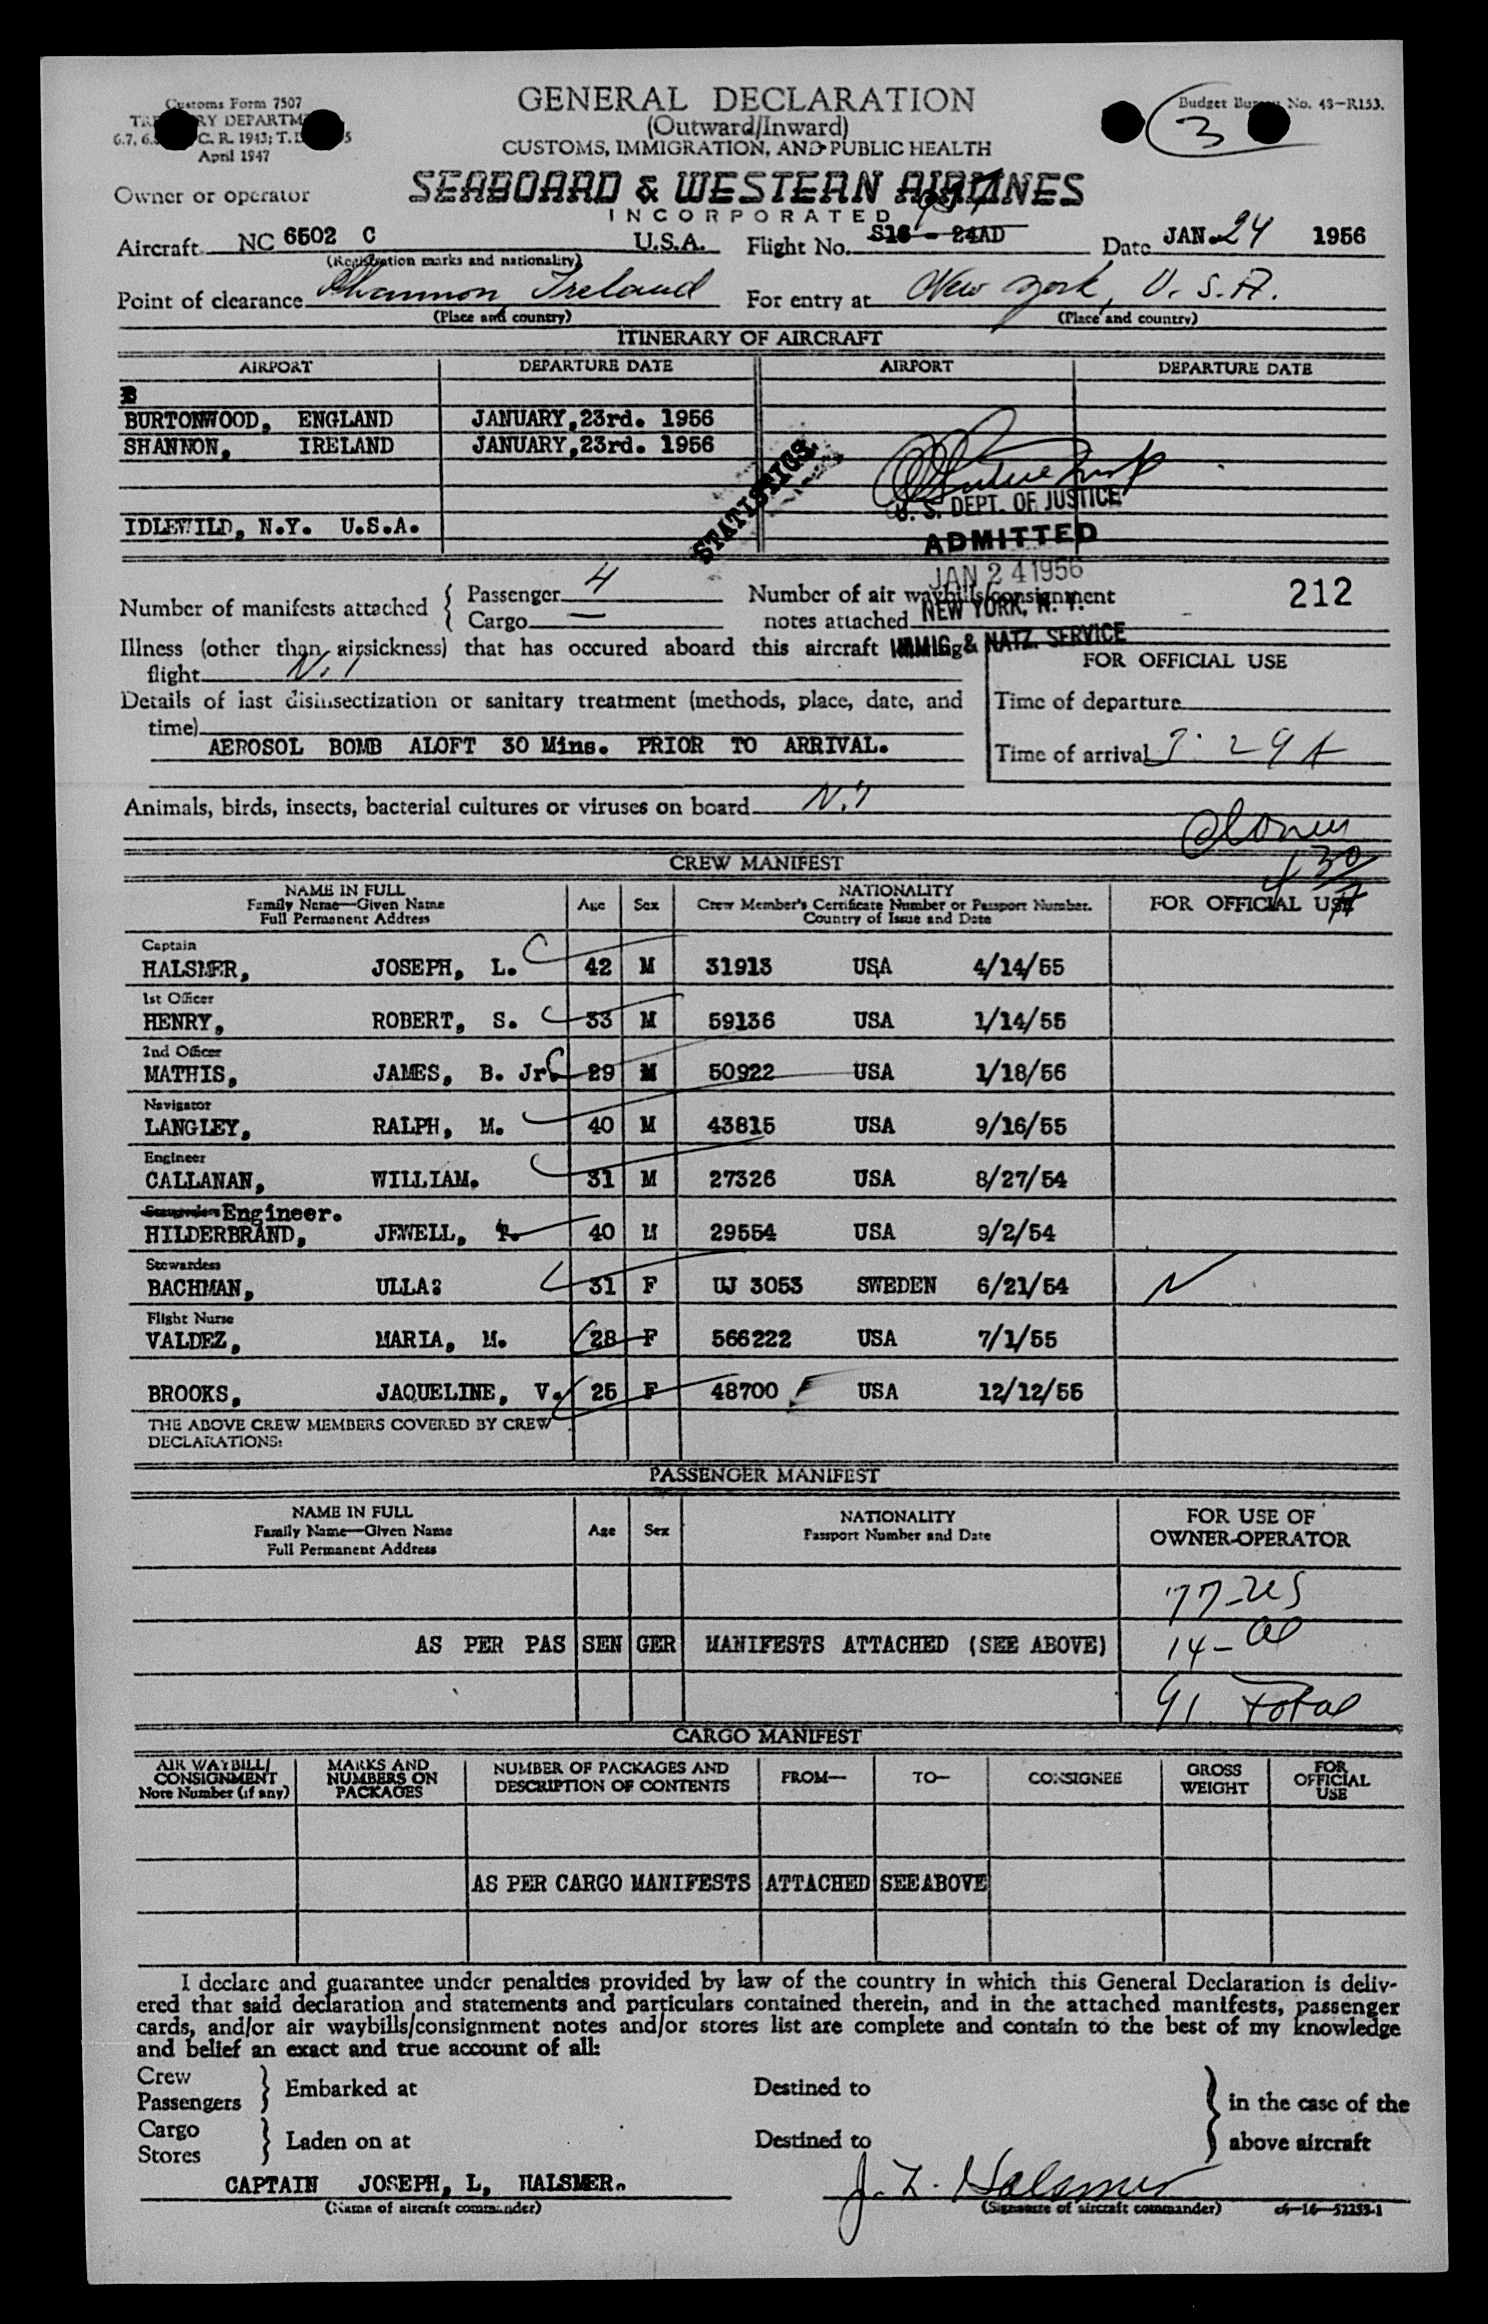 Customs Form 7507
GENERAL DECLARATION
Budget No. 48-R153.
3
(Outward/Inward)
CUSTOMS, IMMIGRATION, AND PUBLIC HEALTH
April 1947
Owner or operator SEABOARD & WESTERN AIRLINES
INCORPORATED
Aircraft NC 6502 C U.S.A. Flight No. S16 - 24AD Date JAN. 24 1956
(Registration marks and nationality)
Point of clearance Shannon, Ireland For entry at New York, U.S.A.
(Place and country) (Place and country)
ITINERARY OF AIRCRAFT
AIRPORT DEPARTURE DATE AIRPORT DEPARTURE DATE
B
BURTONWOOD, ENGLAND JANUARY,23rd. 1956
SHANNON, IRELAND JANUARY,23rd. 1956
STATISTICS
U. S. DEPT. OF JUSTICE
IDLEWILD, N.Y. U.S.A.
ADMITTED
JAN 24 1956
NEW YORK, N. Y.
IMMIG & NATZ. SERVICE
Number of manifests attached { Passenger 4 Number of air waybills/consignment 212
Cargo — notes attached -
Illness (other than airsickness) that has occured aboard this aircraft
flight Nil
FOR OFFICIAL USE
Details of last disinsectization or sanitary treatment (methods, place, date, and Time of departure
time)
AEROSOL BOMB ALOFT 30 Mins. PRIOR TO ARRIVAL.
Time of arrival 3:29A
Animals, birds, insects, bacterial cultures or viruses on board Nil
CREW MANIFEST
NAME IN FULL
Family Name—Given Name
Full Permanent Address
Age Sex
NATIONALITY
Crew Member's Certificate Number or Passport Number.
Country of Issue and Date
FOR OFFICIAL USE
Captain
HALSMER, JOSEPH, L. 42 M 31913 USA 4/14/55
1st Officer
HENRY, ROBERT, S. 33 M 59136 USA 1/14/55
2nd Officer
MATHIS, JAMES, B. Jr. 29 M 50922 USA 1/18/56
Navigator
LANGLEY, RALPH, M. 40 M 43815 USA 9/16/55
Engineer
CALLANAN, WILLIAM. 31 M 27326 USA 8/27/54
Engineer.
HILDERBRAND, JEWELL, T. 40 M 29554 USA 9/2/54
Stewardess
BACHMAN, ULLA: 31 F UJ 3053 SWEDEN 6/21/54
Flight Nurse
VALDEZ, MARIA, M. 28 F 566222 USA 7/1/55
BROOKS, JAQUELINE, V. 25 F 48700 USA 12/12/55
THE ABOVE CREW MEMBERS COVERED BY CREW
DECLARATIONS:
PASSENGER MANIFEST
NAME IN FULL
Family Name—Given Name
Full Permanent Address
Age Sex
NATIONALITY
Passport Number and Date
FOR USE OF
OWNER-OPERATOR
77-US
AS PER PAS SEN GER MANIFESTS ATTACHED (SEE ABOVE) 14-
91 Total
CARGO MANIFEST
AIR WAYBILL/
CONSIGNMENT
Note Number (if any)
MARKS AND
NUMBERS ON
PACKAGES
NUMBER OF PACKAGES AND
DESCRIPTION OF CONTENTS
FROM—
TO—
CONSIGNEE
GROSS
WEIGHT
FOR
OFFICIAL
USE
AS PER CARGO MANIFESTS ATTACHED SEE ABOVE
I declare and guarantee under penalties provided by law of the country in which this General Declaration is deliv-
ered that said declaration and statements and particulars contained therein, and in the attached manifests, passenger
cards, and/or air waybills/consignment notes and/or stores list are complete and contain to the best of my knowledge
and belief an exact and true account of all:
Crew
Passengers } Embarked at Destined to } in the case of the
Cargo
Stores } Laden on at Destined to above aircraft
CAPTAIN JOSEPH, L, HALSMER. J. L. Halsmer
(Name of aircraft commander) (Signature of aircraft commander)